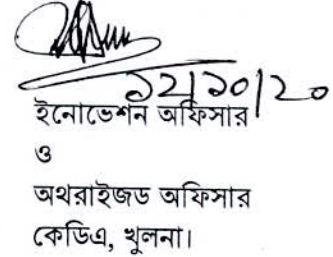 ১২/১০/২০
ইনোভেশন অফিসার
ও
অথরাইজড অফিসার
কেডিএ, খুলনা।